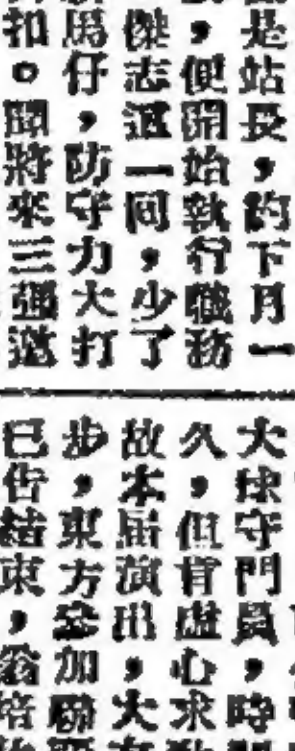 是站長，約下月一
，便開始執行職務
傑志這一回，少了
馬仔，防守力大打
扣。聞將來三強邀
大球守門員，時
久，但肯虛心求
故本屆演出，大
步，東方參加聯
已告結束，翁培